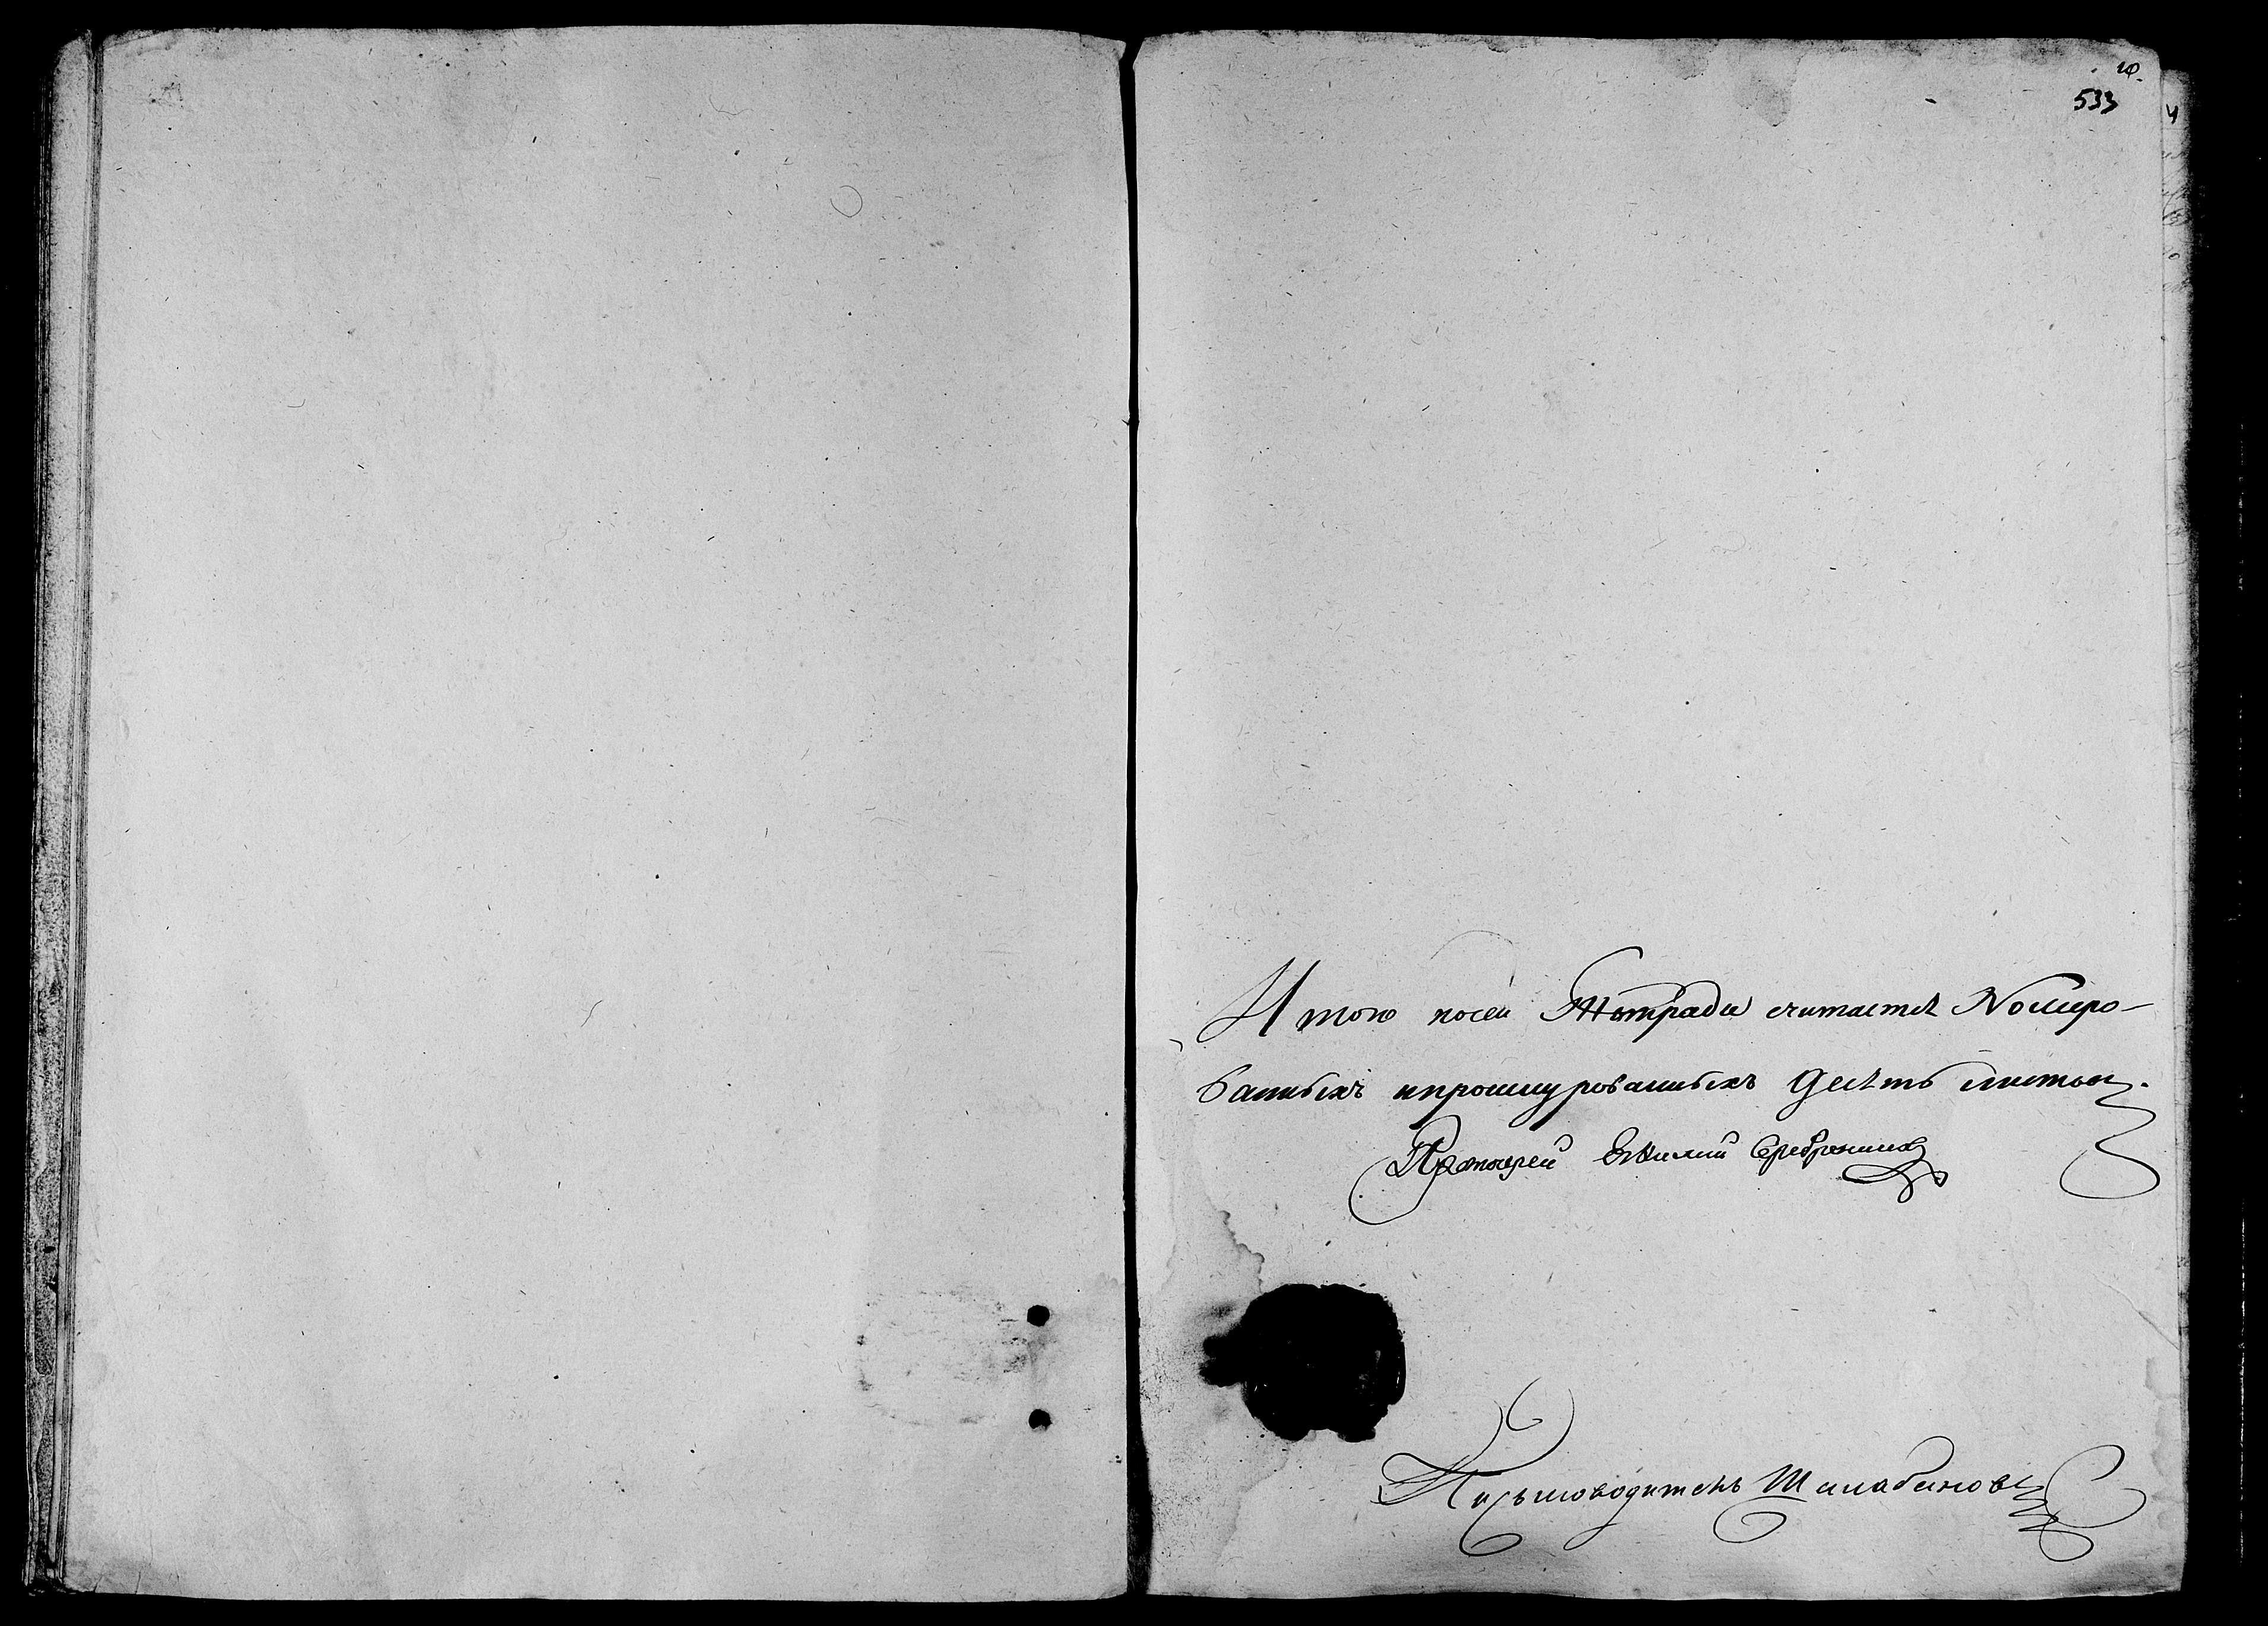 10.
533
Итого посей Тетради считается Номеро-
ванныхъ ипрошнурованныхъ десять листовъ.
Протоиерей Василий Серебренников
Письмоводитель Шалабановъ